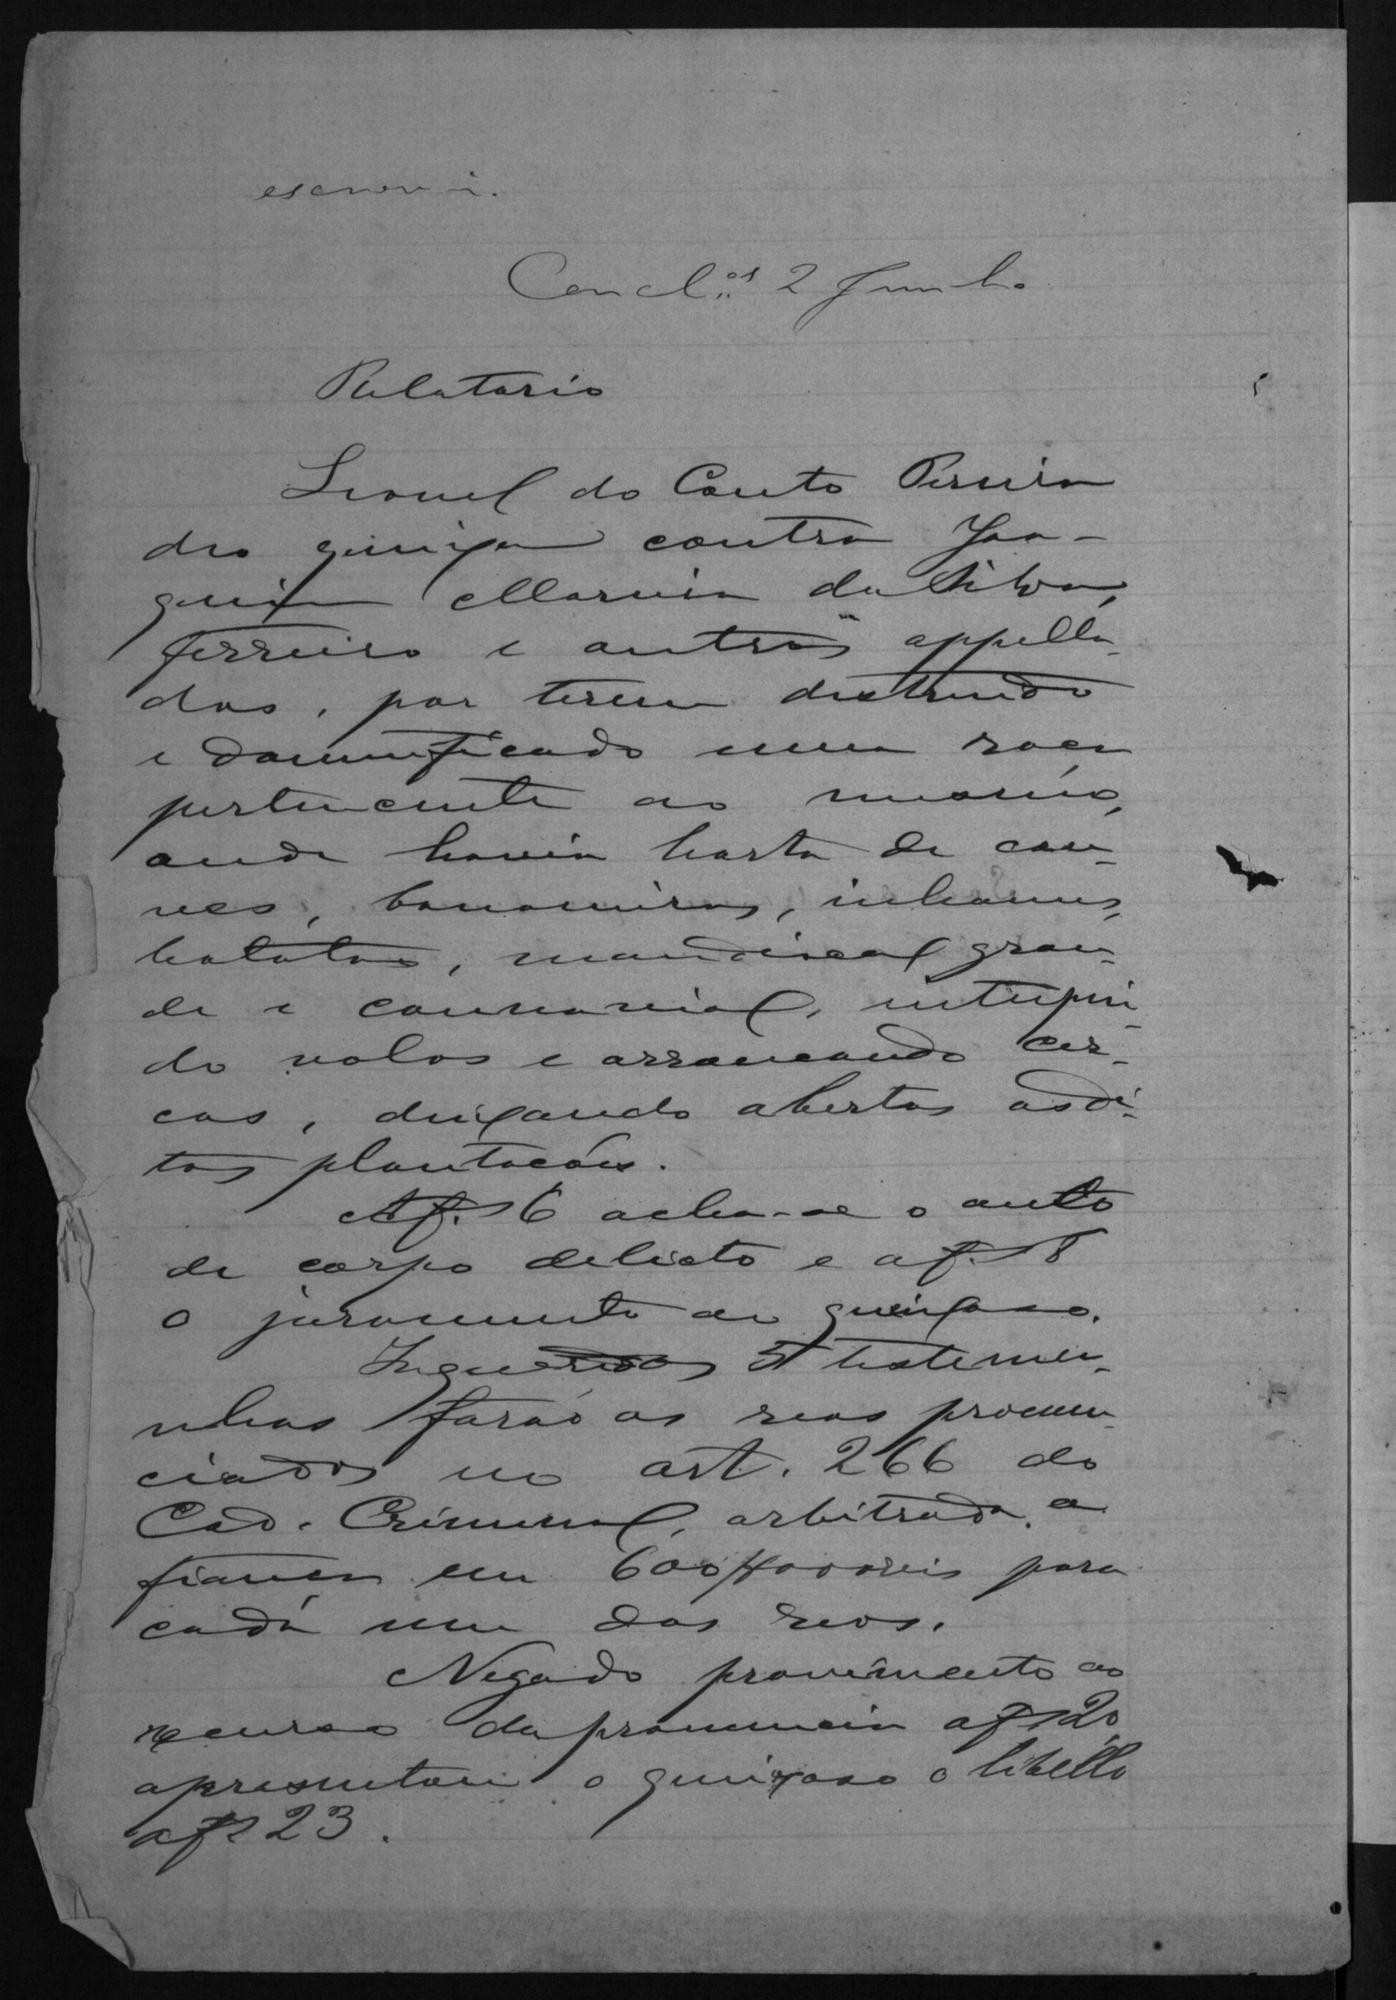 escrevi.
Concl.os 2 Junho
Relatorio
Leonel do Couto Pereira
deo queixa contra Joa-
quim Moreira da Silva,
ferreiro e outros appella-
dos, por terem destruido
e damnificado uma roça
pertencente ao mesmo,
onde havia horta de cou-
ves, bananeiras, inhames,
batatas, mandiocal gran-
de e cannavial, entupin-
do vallos e arrancando cer-
cas, deixando abertas as di-
tas plantacões.
A f. 6 acha-se o auto
de corpo delicto e a f. 18
o juramento ao queixoso.
Inqueridas 5 testemu-
nhas farão os reos pronun-
ciados no art. 266 do
Cod. Criminal, arbitrada a
fiança em 600$000 reis para
cada um dos reos.
Negado provimento ao
recurso da pronuncia a fs 20
apresentou o queixoso o libello
a fs 23.